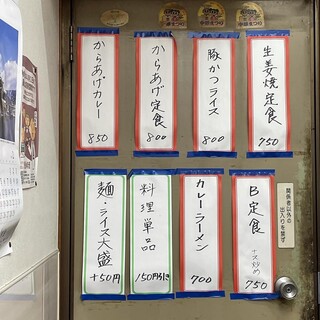 生姜焼定食 750
豚かつライス 800
からあげ定食 800
からあげカレー 850
B定食 ナス炒め 750
カレーラーメン 700
料理単品 150円引き
麺・ライス大盛 +50円
関係者以外の
出入りを禁ず